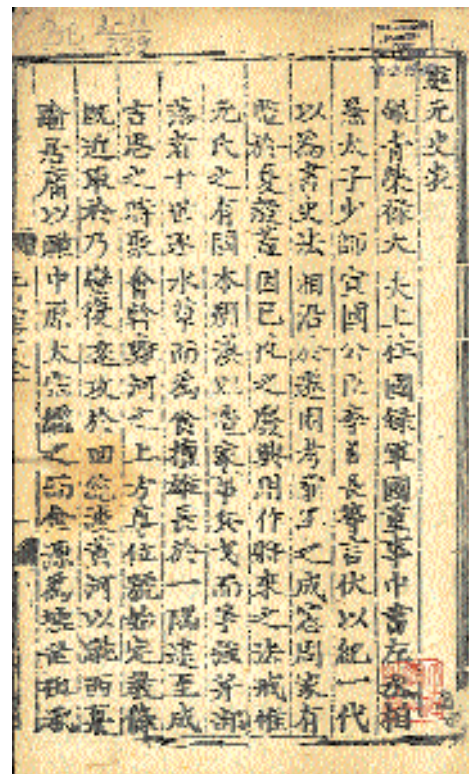 進元史表
銀青榮祿大夫上柱國錄軍國重事中書左丞相
兼太子少師宣國公臣李善長等言伏以紀一代
以爲書史法相沿於遷固考前王之成憲周家有
鑑於夏殷蓋因已徃之廢興用作將來之法戒惟
元氏之有國本朔漠以造家事兵戈而爭强并部
落者十世逐水草而爲食擅雄長於一隅逮至成
吉思之時聚會斡難河之上方尊位號始定敎條
既近取於乃蠻復遠攻於回紇渡黃河以蹴西夏
踰居庸以瞰中原太宗繼之而金源爲墟世祖承